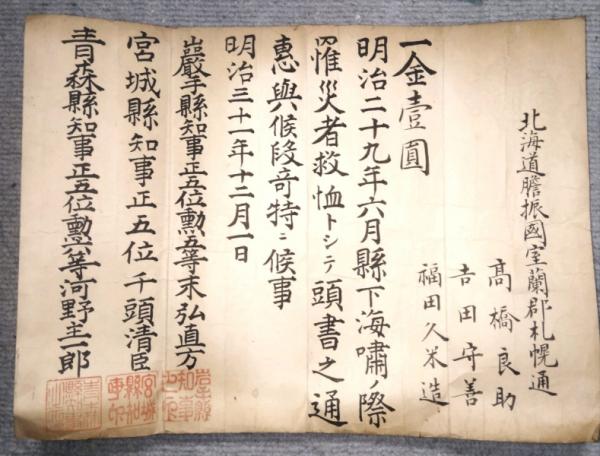 北海道膽振國室蘭郡札幌通
髙橋良助
吉田守善
福田久米造
一金壹圓
明治二十九年六月縣下海嘯ノ際
罹災者救恤トシテ頭書之通
惠與候段竒特ニ候事
明治三十一年十二月一日
巖手縣知事正五位勲五等末弘直方
宮城縣知事正五位千頭清臣
青森縣知事正五位勲六等河野主一郎
巖手縣知事之印
宮城縣知事印